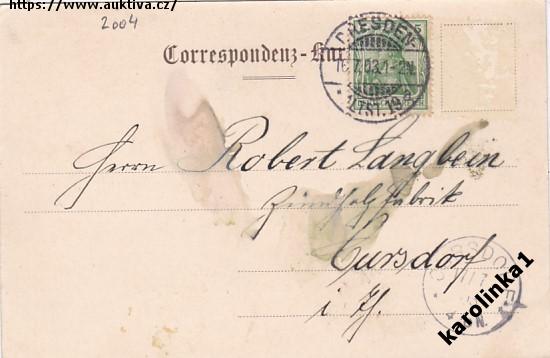 https://www.auktiva.cz/
2004
Correspondenz-Kar
DRESDEN-
16.7.03.1-2N.
ALTST. 19 a.
Herrn Robert Langbein
Zündholzfabrik
Cursdorf
i. Th.
karolinka1